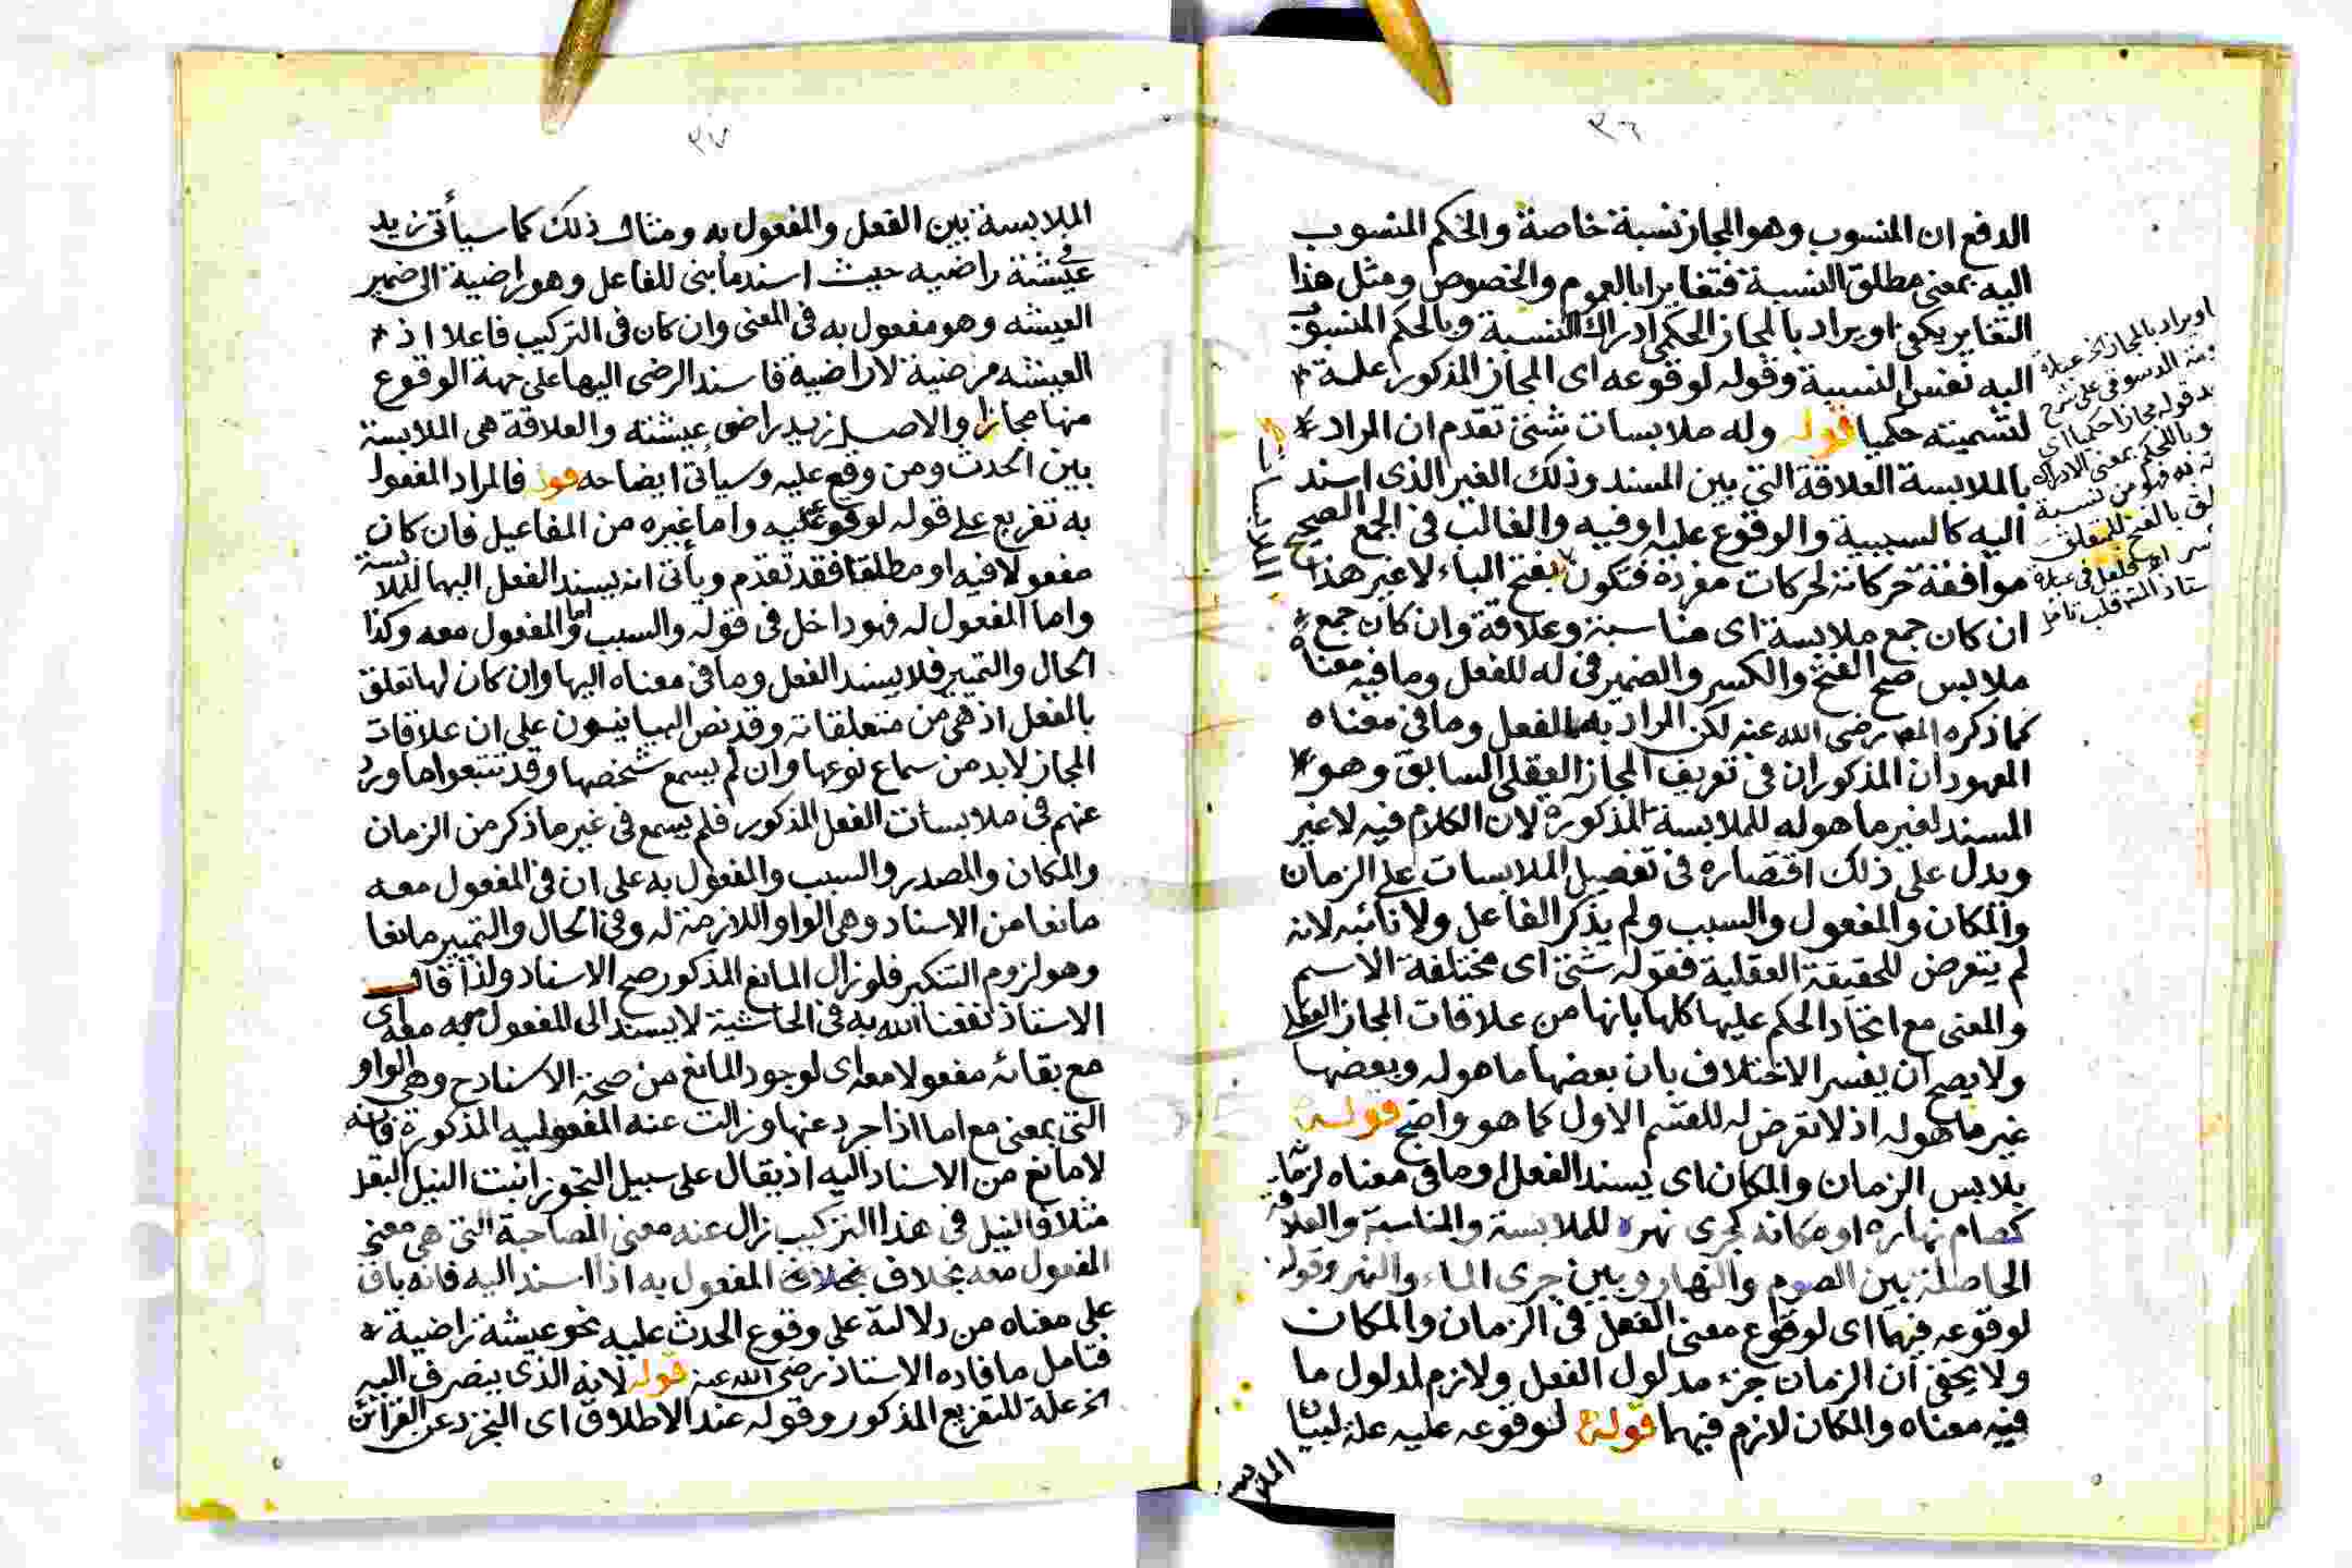 ٣٦
الدفع ان المنسوب وهو المجاز نسبة خاصة والحكم المنسوب
اليه بمعنى مطلق النسبة فتغايرا بالعموم والخصوص ومثل هذا
التغاير يكفى او يراد بالمجاز الحكمى ادراك النسبة وبالحكم المنسوب
اليه نفس النسبة وقوله لوقوعه اى المجاز المذكور علة
لتسميته حكميا قوله وله ملابسات شتى تقدم ان المراد
بالملابسة العلاقة التى بين المسند وذلك الغير الذى اسند
اليه كالسببية والوقوع عليه او فيه والغالب فى الجمع الصحيح
موافقة حركاته لحركات مفرده فتكون بفتح الباء لا غير هذا
ان كان جمع ملابسة اى مناسبة وعلاقة وان كان جمع
ملابس صح الفتح والكسر والضمير فى له للفعل وما فيه معناه
كما ذكره المص رضى الله عنه لكن المراد بهما الفعل وما فى معناه
المعهودان المذكوران فى تعريف المجاز العقلى السابق وهو
المسند لغير ما هو له للملابسة المذكورة لان الكلام فيه لا غير
ويدل على ذلك اقتصاره فى تفصيل الملابسات على الزمان
والمكان والمفعول والسبب ولم يذكر الفاعل ولا نائبه لانه
لم يتعرض للحقيقة العقلية فقوله شتى اى مختلفة الاسم
والمعنى مع اتحاد الحكم عليها كلها بانها من علاقات المجاز العقلى
ولا يصح ان يفسر الاختلاف بان بعضها ما هو له وبعضها
غير ما هو له اذ لا تعرض له للقسم الاول كما هو واضح قوله
يلابس الزمان والمكان اى يسند الفعل او ما فى معناه لزمانه
كصام نهاره او مكانه كجرى نهره للملابسة والمناسبة والعلاقة
الحاصلة بين الصوم والنهار وبين جرى الماء والنهر وقوله
لوقوعه فيهما اى لوقوع معنى الفعل فى الزمان والمكان
ولا يخفى ان الزمان جزء مدلول الفعل ولازم لمدلول ما
فيه معناه والمكان لازم فيهما قوله لوقوعه عليه علة لبيان
الملابسة
او يراد بالمجاز الخ عبارة
الدسوقى على شرح
قوله مجازا حكميا اى
بمعنى الادراك
من نسبة
بالفتح للمتعلق
فى عبارة
قلب تامل
الملابسات
٣٧
الملابسة بين الفعل والمفعول به ومثال ذلك كما سيأتى زيد
فى عيشة راضيه حيث اسند ما بنى للفاعل وهو راضية الى ضمير
العيشه وهو مفعول به فى المعنى وان كان فى التركيب فاعلا اذ
العيشه مرضية لا راضية فاسند الرضى اليها على جهة الوقوع
منها مجازا والاصل زيد راض عيشته والعلاقة هى الملابسة
بين الحدث ومن وقع عليه وسيأتى ايضاحه قوله فالمراد المفعول
به تفريع على قوله لوقوعه عليه واما غيره من المفاعيل فان كان
مفعولا فيه او مطلقا فقد تقدم ويأتى انه يسند الفعل اليهما للملابسة
واما المفعول له فهو داخل فى قوله والسبب واما المفعول معه وكذا
الحال والتمييز فلا يسند الفعل وما فى معناه اليها وان كان لها تعلق
بالفعل اذ هى من متعلقاته وقد نص البيانيون على ان علاقات
المجاز لا بد من سماع نوعها وان لم يسمع شخصها وقد تتبعوا ما ورد
عنهم فى ملابسات الفعل المذكور فلم يسمع فى غير ما ذكر من الزمان
والمكان والمصدر والسبب والمفعول به على ان فى المفعول معه
مانعا من الاسناد وهى الواو اللازمة له وفى الحال والتمييز مانعا
وهو لزوم التنكير فلو زال المانع المذكور صح الاسناد ولذا قال
الاستاذ نفعنا الله به فى الحاشية لا يسند الى المفعول معه اى
مع بقائه مفعولا معه اى لوجود المانع من صحة الاسناد ح وهى الواو
التى بمعنى مع اما اذا جرد عنها وزالت عنه المفعوليه المذكورة فانه
لا مانع من الاسناد اليه اذ يقال على سبيل التجوز انبت النيل البقل
مثلا فالنيل فى هذا التركيب زال عنه معنى المصاحبة التى هى معنى
المفعول معه بخلاف بخلاف المفعول به اذا اسند اليه فانه باق
على معناه من دلالته على وقوع الحدث عليه نحو عيشة راضية
فتامل ما افاده الاستاذ رضى الله عنه قوله لانه الذى ينصرف اليه
الخ علة للتفريع المذكور وقوله عند الاطلاق اى التجرد عن القرائن